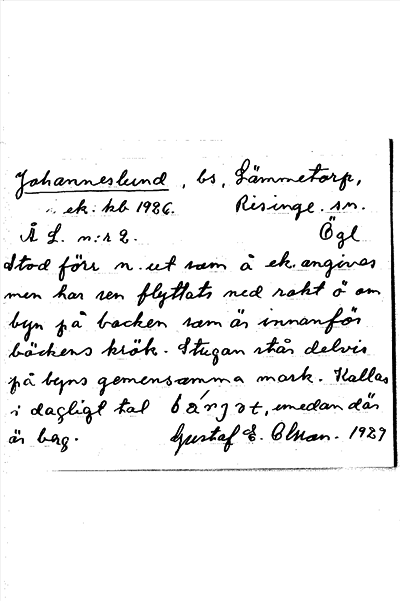 Johanneslund, bs, Lämmetorp,
ek. kb 1926. Risinge. sn.
Å L. n:r 2. Ögl
Stod förr n. ut som å ek. angives
men har sen flyttats ned rakt ö om
byn på backen som är innanför
bäckens krök. Stugan står delvis
på byns gemensamma mark. Kallas
i dagligt tal bárjət, emedan där
är berg. Gustaf E. Olsson. 1929